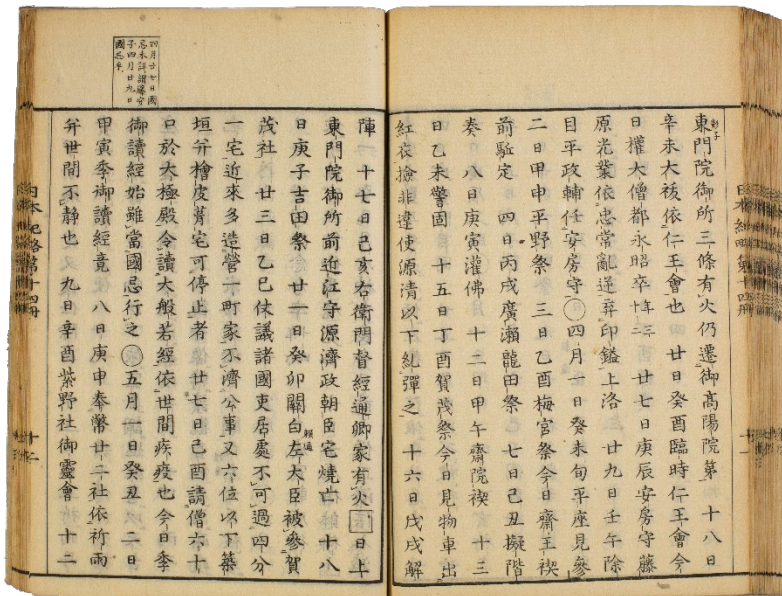 東門院御所三條有火仍遷御高陽院第 十八日
辛未大祓依仁王會也 廿日癸酉臨時仁王會今
日權大僧都永昭卒年 廿七日庚辰安房守藤
原光業依忠常亂逆弃印鎰上洛 廿九日壬午除
目平政輔任安房守〇四月一日癸未旬平座見參
二日甲申平野祭 三日乙酉梅宮祭今日齋王禊
前駈定 四日丙戌廣瀨龍田祭 七日己丑擬階
奏 八日庚寅灌佛 十二日甲午齋院禊 十三
日乙未警固 十五日丁酉賀茂祭今日見物車出
紅衣撿非違使源清以下糺彈之 十六日戊戌解
陣 十七日己亥右衛門督經通卿家有火 日上
東門院御所前近江守源濟政朝臣宅燒亡 十八
日庚子吉田祭 廿一日癸卯關白左大臣賴通被參賀
茂社 廿三日乙巳仗議諸國吏居處不可過四分
一宅近來多造營一町家不濟公事又六位以下築
垣并檜皮葺宅可停止者 廿七日己酉請僧六十
口於大極殿令讀大般若經依世間疾疫也今日季
御讀經始雖當國忌行之〇五月一日癸丑 二日
甲寅季御讀經竟 八日庚申奉幣廿二社依祈雨
并世間不靜也 九日辛酉紫野社御靈會 十二
四月廿七日國
子四月廿九日
日本紀略第十四冊
十二
日本紀略第十四冊